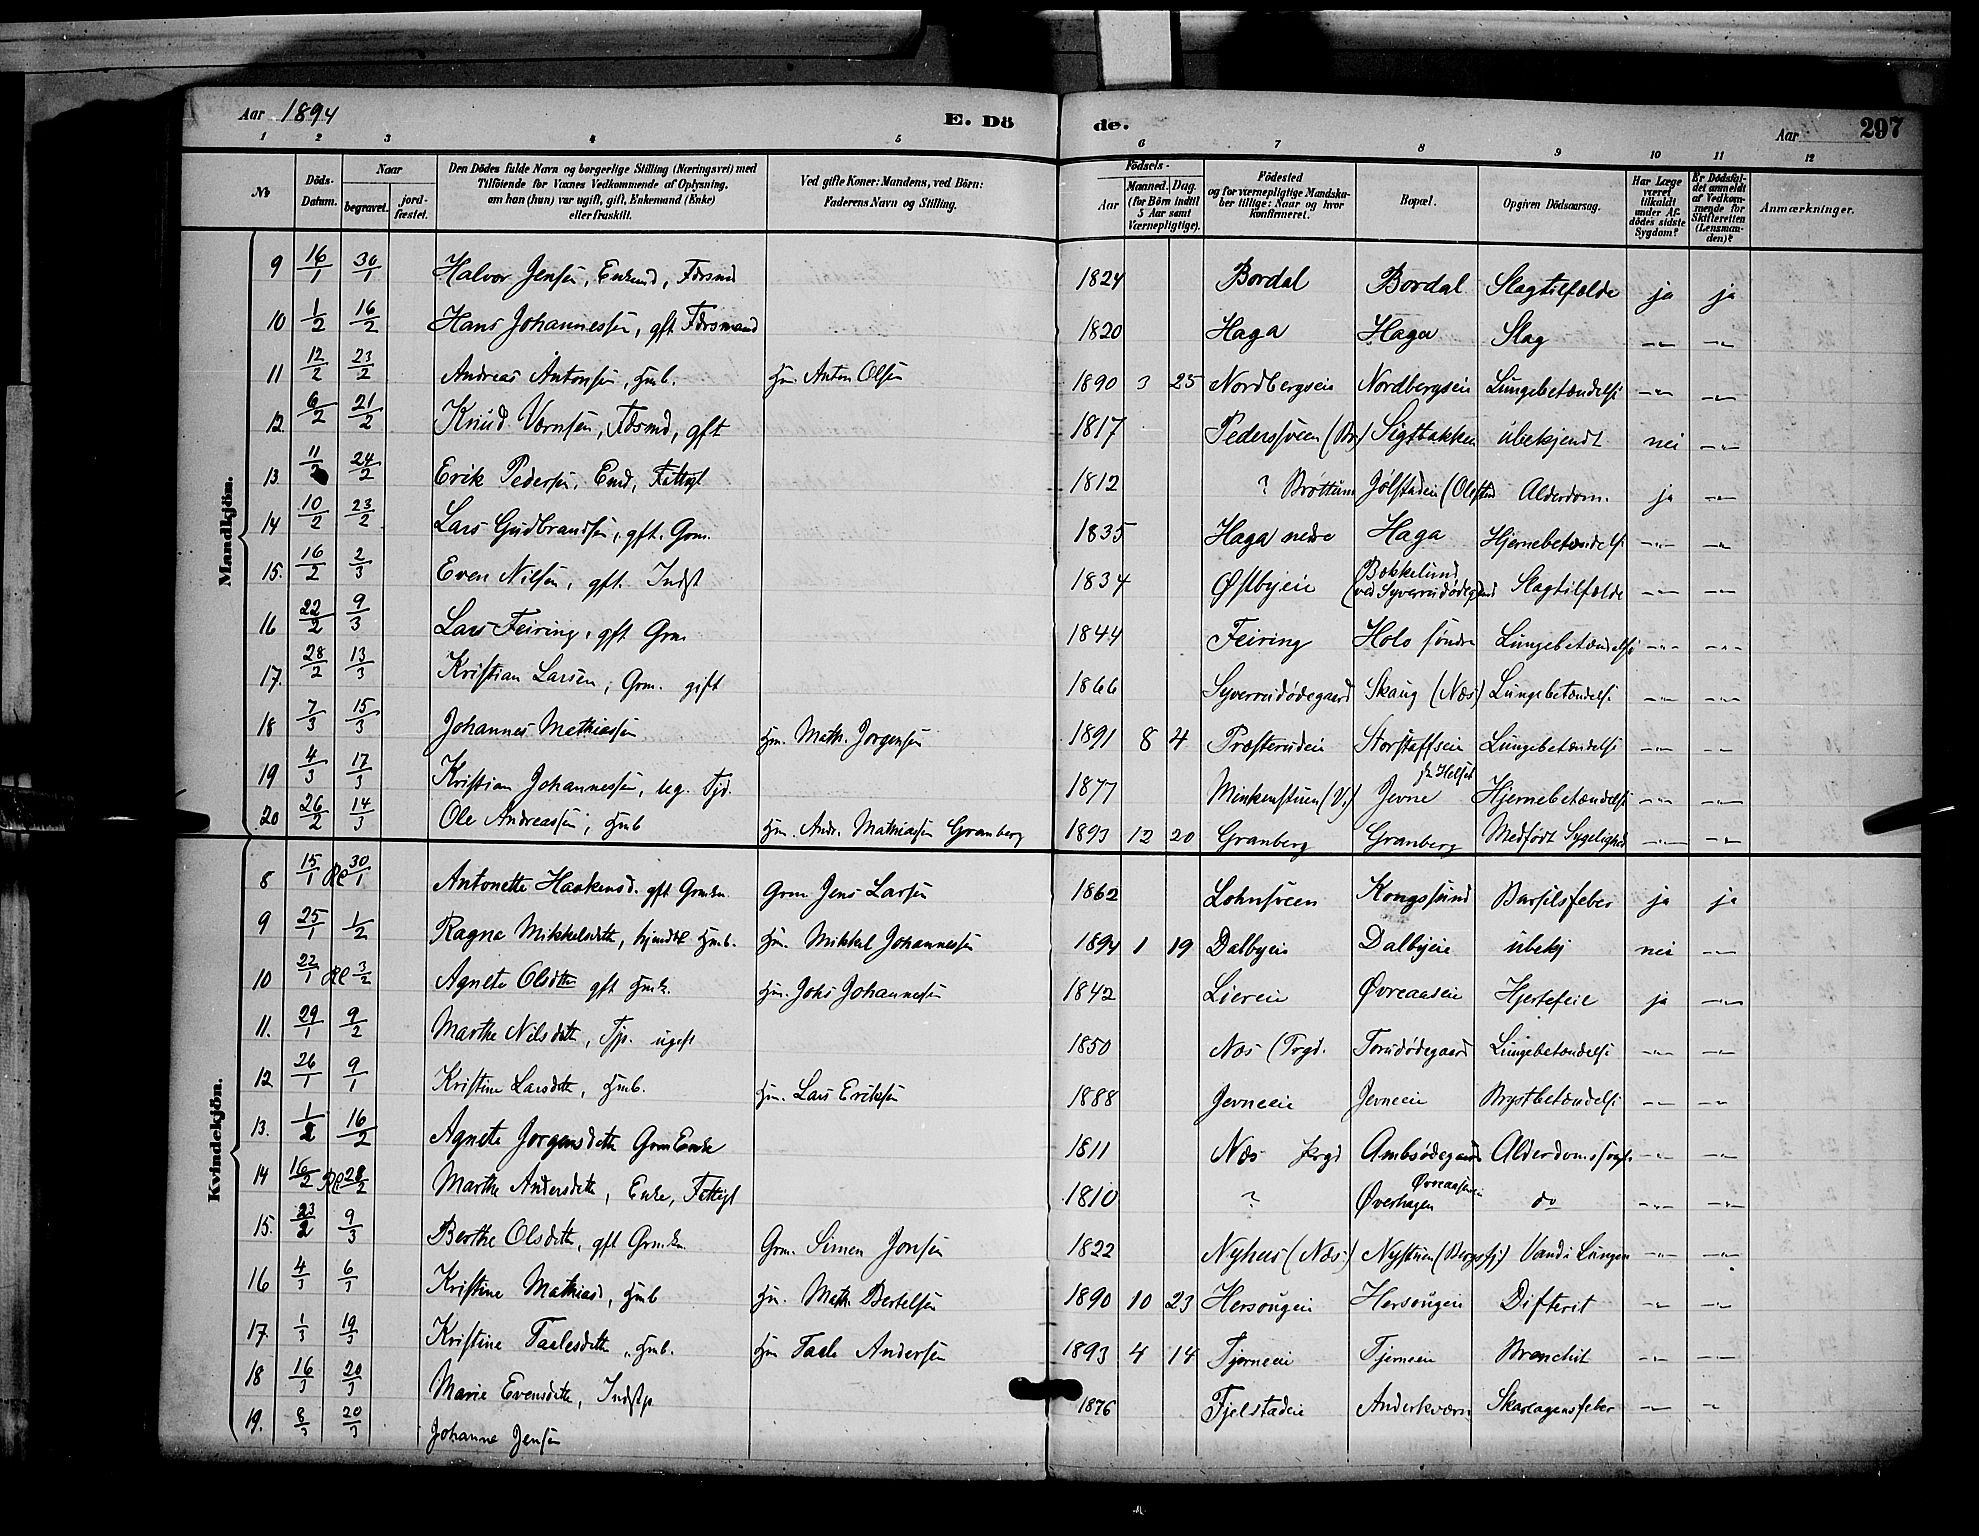 Aar 1894 E. Dö de. Aar 297
1 2 3 4 5 6 7 8 9 10 11 12
No Döds-Datum. Naar begravet. jord-fæstet. Den Dödes fulde Navn og borgerlige Stilling (Næringsvei) med Tilföiende for Voxnes Vedkommende af Oplysning, om han (hun) var ugift, gift, Enkemand (Enke) eller fraskilt. Ved gifte Koner: Mandens, ved Börn: Faderens Navn og Stilling. Födsels- Aar Maaned. Dag. (for Börn indtil 5 Aar samt Værnepligtige). Födested og for værnepligtige Mandskaber tillige: Naar og hvor konfirmeret. Bopæl. Opgiven Dödsaarsag. Har Læge været tilkaldt under Afdödes sidste Sygdom? Er Dödsfaldet anmeldt af Vedkommende for Skifteretten (Lensmanden)? Anmærkninger.
Mandkjön.
9 16/1 30/1 Halvor Jensen, Enkemd, Fdrsmd 1824 Bordal Bordal Slagtilfælde ja ja
10 1/2 16/2 Hans Johannessen, gft Fdrsmand 1820 Haga Haga Slag -"- -"-
11 12/2 23/2 Andreas Antonsen, Hmb. Hm. Anton Olsen 1890 3 25 Nordbergseie Nordbergseie Lungebetændelse -"- -"-
12. 6/2 21/2 Knud Vernsen, Fdsmd, gft 1817 Pederssveen (Br) Sigstbakken übekjendt nei -"-
13. 11/2 24/2 Erik Pedersen, Emd, Fattigl 1812 ? Brøttum Jølstadeie Alderdom. ja -"-
14 10/2 23/2 Lars Gudbrandsen, gft. Grm. 1835 Haga nedre Haga Hjernebetændelse -"- -"-
15. 16/2 2/3 Even Nilsen, gft. Indst 1834 Østbyeie Bækkelund Slagtilfælde -"- -"-
16 22/2 9/3 Lars Feiring, gft Grm. 1844 Feiring Holo søndre Lungebetændelse -"- -"-
17. 28/2 13/3 Kristian Larsen, Grm. gift 1866 Syverrudødegaard Skaug (Næs) Lungebetændelse -"- -"-
18 7/3 15/3 Johannes Mathiassen Hm. Math. Jorgensen 1891 8 4 Præsterudeie Storstaffseie Lungebetændelse -"- -"-
19 4/3 17/3 Kristian Johannessen, ug. Tjd. 1877 Minkenstuen (V.) Jevne Hjernebetændelse -"- -"-
20 26/2 14/3 Ole Andreassen, Hmb Hm. Andr. Mathiassen Granberg 1893 12 20 Granberg Granberg Medfödt Sygelighed -"- -"-
Kvindekjön.
8 15/1 30/1 Antonette Haakensd. gft Grmkn. Grm Jens Larsen 1862 Lohnsveen Kongssund Barselsfeber ja ja
9 25/1 1/2 Ragna Mikkelsdtte, hjemdbt Hmb. Hm. Mikkel Johannessen 1894 1 19 Dalbyeie Dalbyeie übekj nei -"-
10 22/1 3/2 Agnete Olsdtte gft Hmk. Hm. Johs Johannessen 1842 Liereie Øvreaaseie Hjertefeil ja -"-
11. 29/1 9/2 Marthe Nilsdtte, Tjp. ugift 1850 Næs (Prgd. Torudødegaard Lungebetændelse -"- -"-
12 26/1 9/1 Kristine Larsdtte, Hmb. Hm. Lars Eriksen 1888 Jevneeie Jevneeie Brystbetændelse -"- -"-
13. 1/2 16/2 Agnete Jorgensdtte Grm Enke 1811 Næs Prgd Ambsødegaard Alderdomssvagh. -"- -"-
14 16/2 28/2 Marthe Andersdtte, Enke, Fattigl 1810 ? Øverhagen do -"- -"-
15. 23/2 9/3 Berthe Olsdtte, gft Grmkn Grm. Simen Jonsen 1822 Nyhus (Næs) Nystuen Vand i Lungen -"- -"-
16 4/3 6/3 Kristine Mathiasd, Hmb Hm. Math. Bertelsen 1890 10 23 Hersougeie Hersougeie Difterit -"- -"-
17. 1/3 19/3 Kristine Taalesdtte, Hmb. Hm Taale Andersen 1893 4 14 Tjerneeie Tjerneeie Bronchit -"- -"-
18 16/3 20/3 Marie Evensdtte, Indstp 1876 Fjelstadeie Anderkværn Skarlagensfeber -"- -"-
19. 8/3 20/3 Johanne Jensen